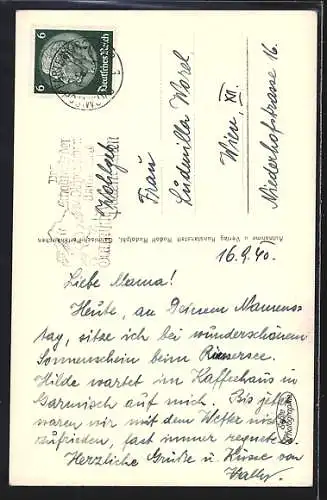 6
Deutsches Reich
6
Wohlgeb.
Frau
Ludmilla Worel
Wien, XII.
Niederhofstrasse 16.
Aufnahme u. Verlag Kunstanstalt Rudolf Rudolphi, Garmisch-Partenkirchen
16.9.40.
Liebe Mama!
Heute, an Deinem Namens-
tag, sitze ich bei wunderschönem
Sonnenschein beim Riessersee.
Hilde wartet im Kaffeehaus in
Garmisch auf mich. Bis jetzt
waren wir mit dem Wetter nicht
zufrieden, fast immer regnete es.
Herzliche Grüße u. Küsse von
Echte Photographie